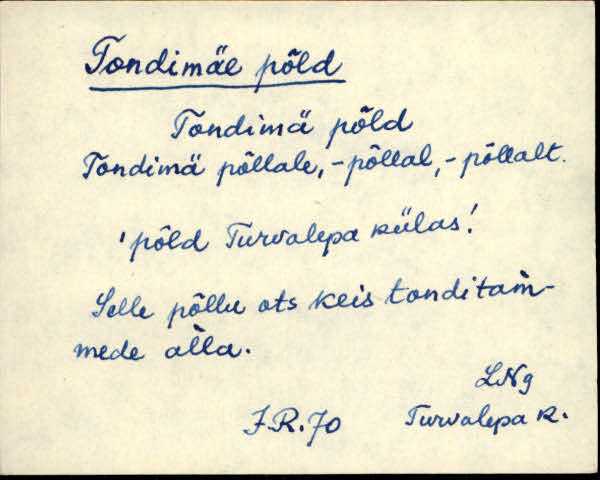 Tondimäe põld
Tondimä põld
Tondimä põllale, -põllal, -põllalt.
'põld Turvalepa külas!
Selle põllu ots keis tonditam̀-
mede al̀la.
LNg
J.R.70 Turvalepa k.